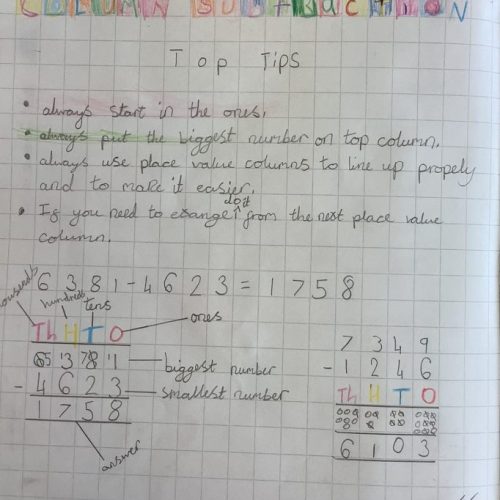 COLUMN SUBTRACTION
Top Tips
• always start in the ones,
• always put the biggest number on top column.
• always use place value columns to line up propely
and to make it easier.
dot
• If you need to exange from the next place value
column.
6 3 8 1 - 4 6 2 3 = 1 7 5 8
hundreds tens ones
Th H T O
6 5 13 7 8 11 biggest number
- 4 6 2 3 smallest number
1 7 5 8
answer
7 3 4 9
- 1 2 4 6
Th H T O
6 1 0 3